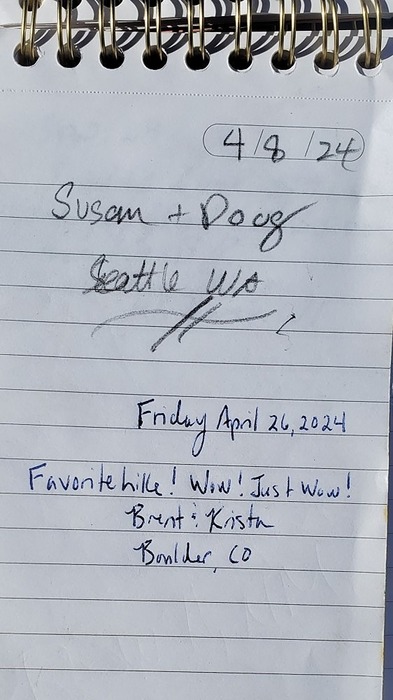 4/8/24
Susan + Doug
Seattle WA
Friday April 26, 2024
Favorite hike! Wow! Just Wow!
Brent & Krista
Boulder, CO